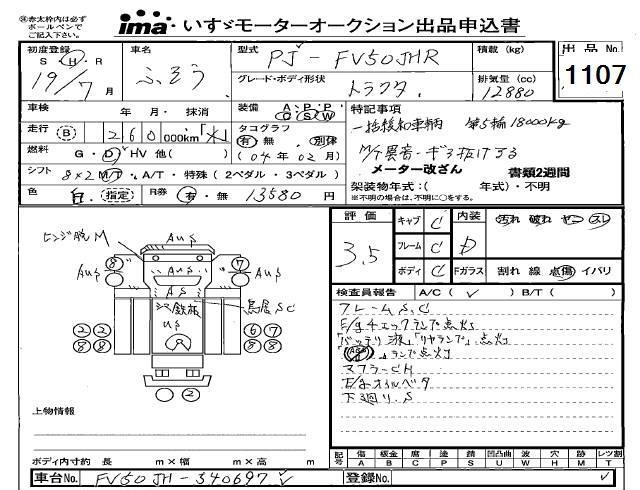 ㊟赤太枠内は必ず
ボールペンで
ご記入下さい。
ima いすゞモーターオークション出品申込書
初度登録 S・H・R 19/7月
車名 ふそう
型式 PJ-FV50JHR
積載 (kg)
出品No. 1107
グレード・ボディ形状 トラクタ
排気量 (cc) 12880
車検 年 月・抹消
装備 A・P・P C S W
特記事項
一括緩和車輌 第5輪18000kg
走行 B 260000km「水」
タコグラフ 有・無 別体 (04年02月)
M/T異音・ギヌ抜けする
燃料 G・D・HV 他( )
メーター改ざん 書類2週間
シフト 8×2 M/T・A/T・特殊(2ペダル・3ペダル)
架装物年式:( 年式)・不明
※不明の場合は、不明に○をする。
色 白 指定 R券 有・無 13580 円
評価 3.5
キャブ C
フレーム C
ボディ C
内装 D
Fガラス
汚れ 破れ ヤニ スレ
割れ 線 点傷 イバリ
検査員報告 A/C(✓) B/T( )
フレームS,C
E/gチェックランプ点灯
「バッテリ液」「リヤランプ」点灯
ABS ランプ点灯
マフラーCH
E/gオイルベタ
下廻り.S
ヒンジ脱M
AUS
AUS
AUS
8
7
AS
シマ鉄板
US
鳥居SC
2 2
8 8
6 7
8 8
2
上物情報
ボディ内寸約 長 m×幅 m×高 m
記号 傷A 板金B 腐C 塗P 錆S 凹凸曲U 波W 穴H 跡M レツ割T
車台No. FV50JH-540697
登録No.